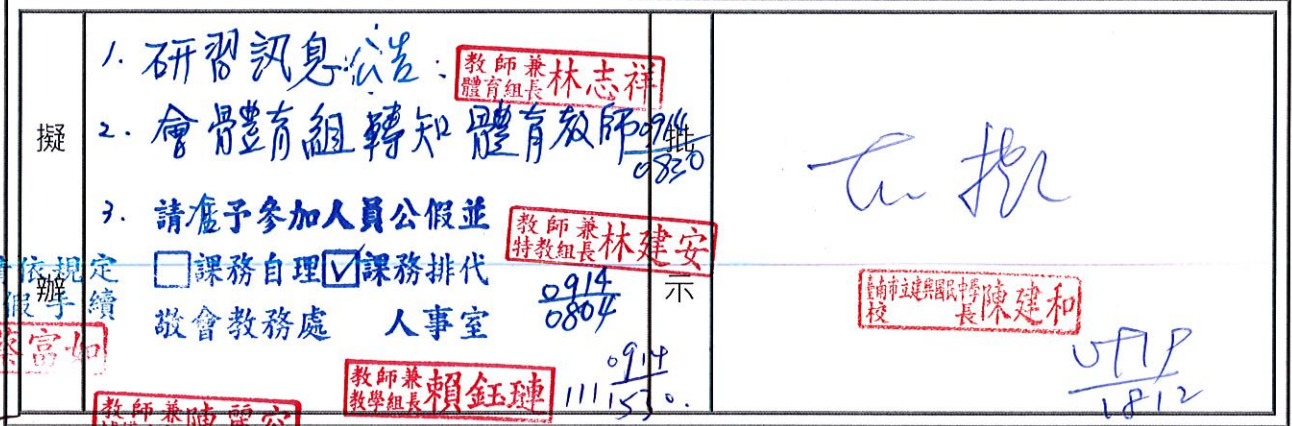 擬辦
1. 研習訊息公告:
教師兼體育組長林志祥
2. 會體育組轉知體育教師
0914
0830
3. 請准予參加人員公假並
□課務自理☑課務排代
敬會教務處 人事室
教師兼特教組長林建安
0914
0804
依規定
假手續
富如
教師兼教學組長賴鈺琿
111 0914
1530.
教師兼
批示
如擬
臺南市立建興國民中學校長陳建和
1812